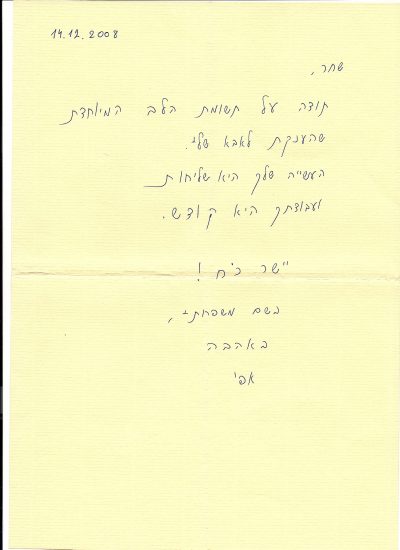 14.12.2008
שחר,
תודה על תשומת הלב המיוחדת
שהענקת לאבא שלי.
העשייה שלך היא שליחות
ועבודתך היא קודש.
יישר כ"ח!
בשם משפחתי,
באהבה
אפי